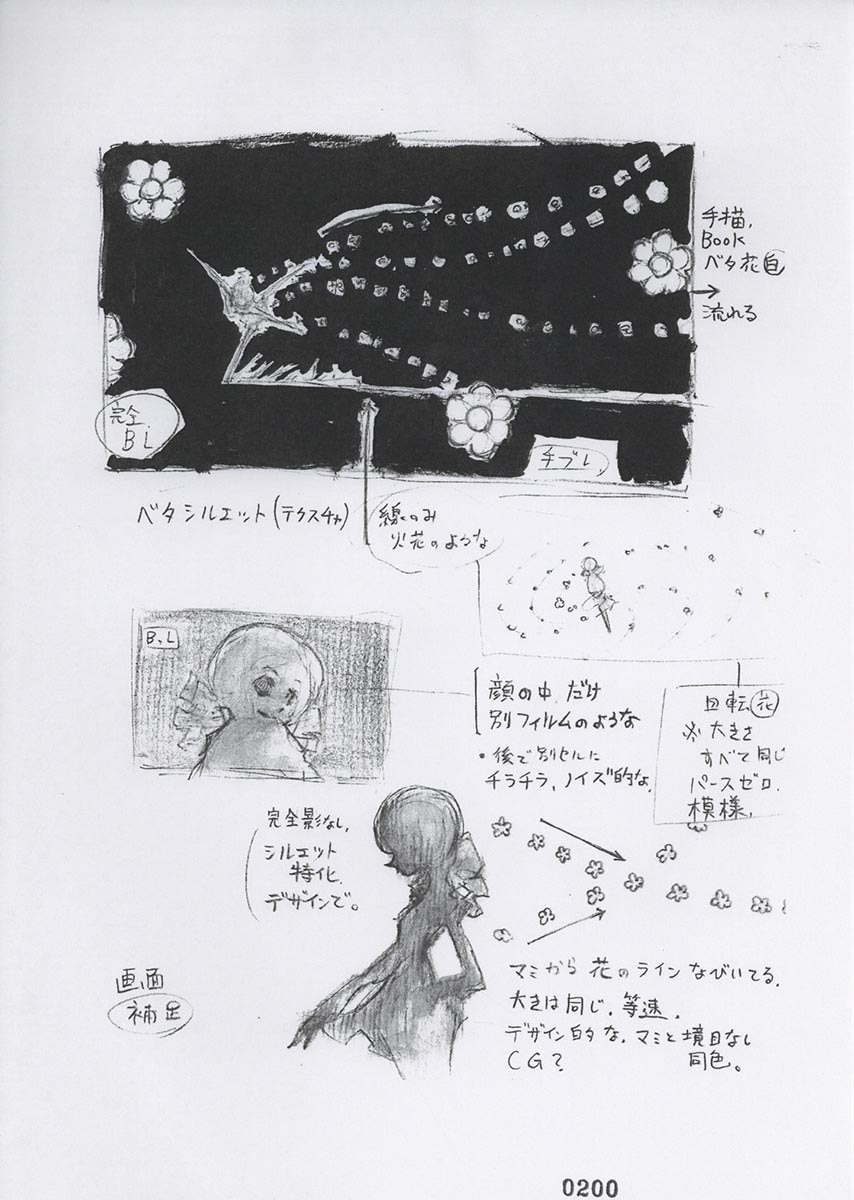 手描,
Book
ベタ花白
→
流れる
完全
BL
手ブレ,
ベタシルエット(テクスチャ)
線のみ
火花のような
B.L
顔の中だけ
別フィルムのような
・後で別セルに
チラチラ, ノイズ的な,
回転花
※大きさ
すべて同じ
パースゼロ.
模様,
完全影なし,
シルエット
特化,
デザインで。
マミから花のラインなびいてる,
大きさは同じ, 等速,
デザイン的な, マミと境目なし
CG? 同色。
画面
補足
0200